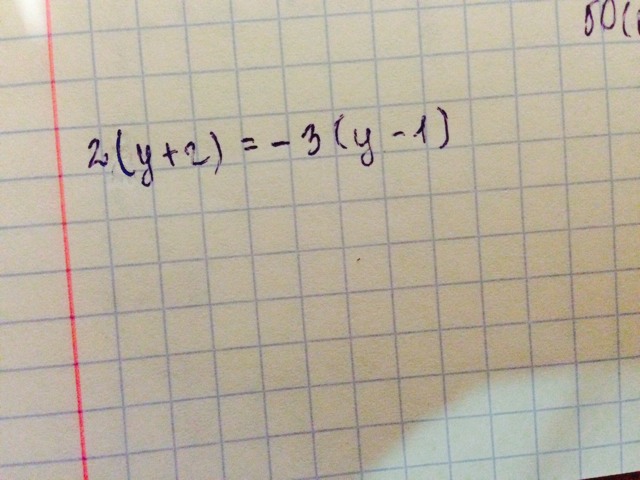 50(
2(y+2) = -3(y-1)